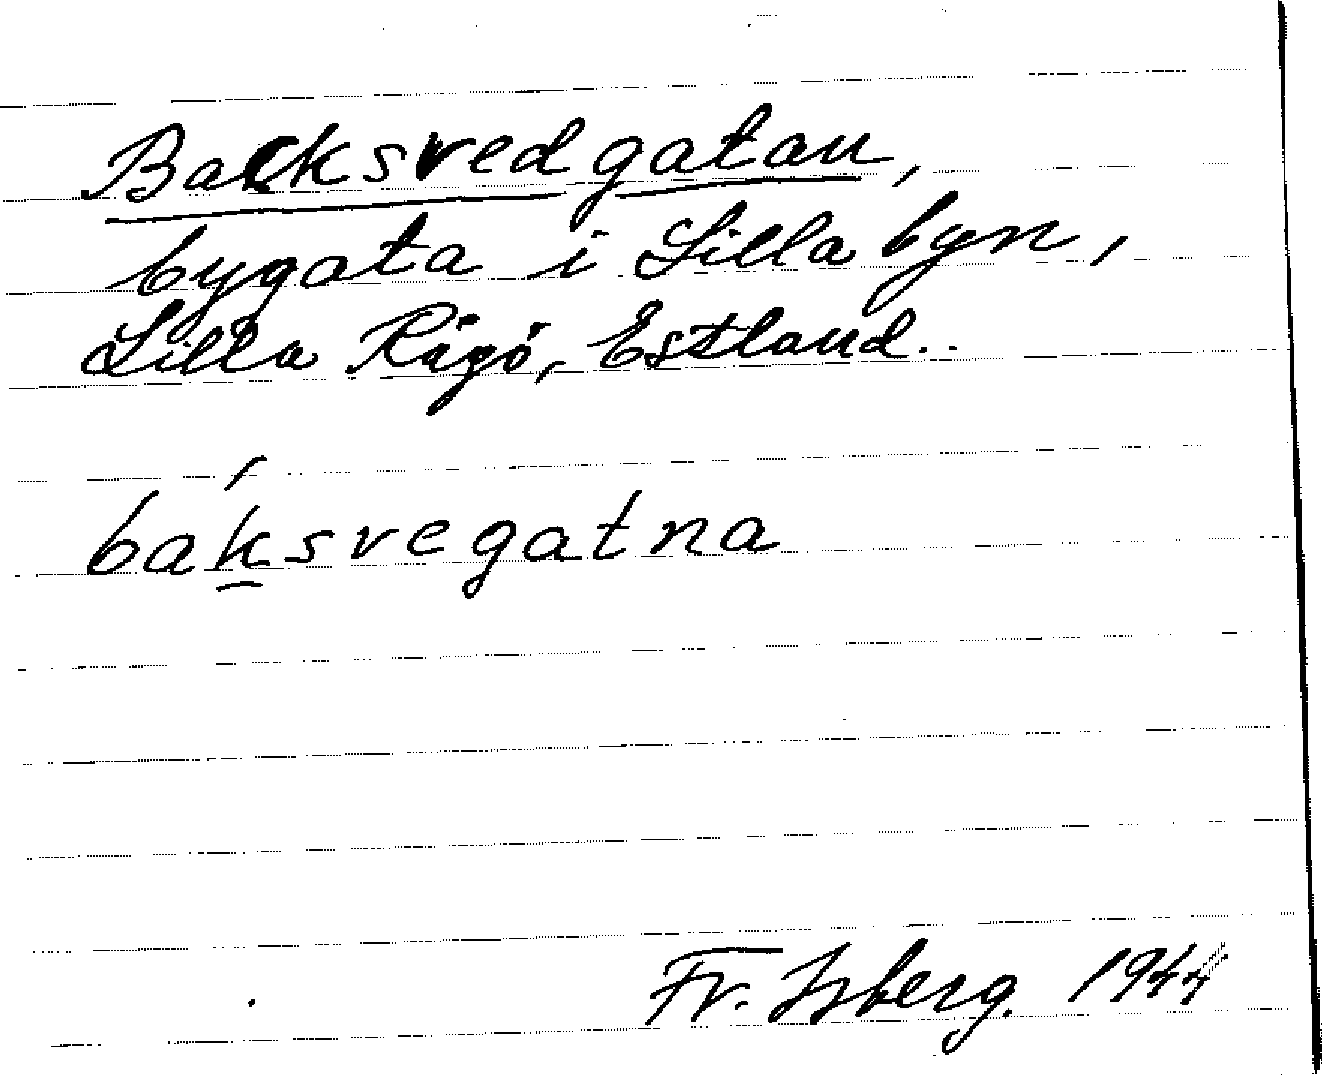 Backsvedgatan,
bygata i Lilla byn,
Lilla Rågö, Estland.
baḱsvegatna
Fr. Isberg. 1944